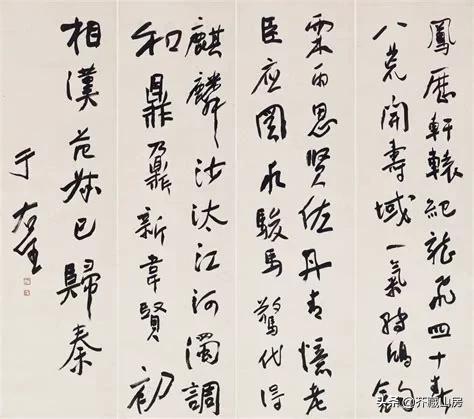 鳳歷軒轅紀龍飛四十春
八荒開壽域一氣轉鴻鈞
霖雨思賢佐丹青憶老
臣應圖求駿馬驚代得
麒麟沙汰江河濁調
和鼎鼐新韋賢初
相漢范叔已歸秦
于右任
头条 @芥藏山房